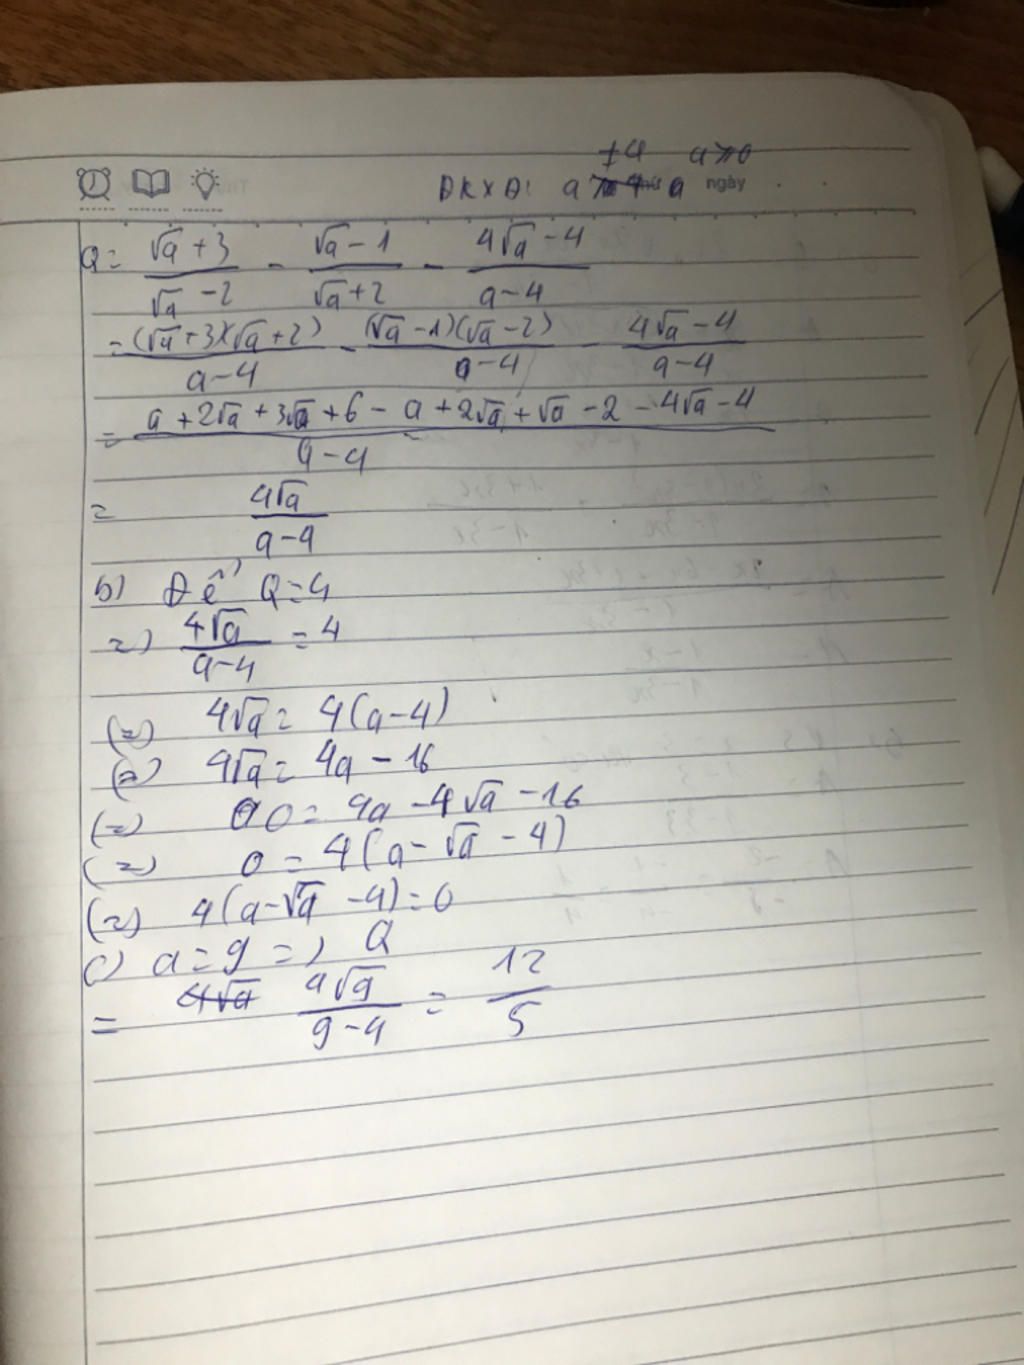 ≠4 a≥0
ĐKXĐ: a a ngày
Q = (√a + 3)/(√a - 2) - (√a - 1)/(√a + 2) - (4√a - 4)/(a - 4)
= (√a + 3)(√a + 2)/(a - 4) - (√a - 1)(√a - 2)/(a - 4) - (4√a - 4)/(a - 4)
= (a + 2√a + 3√a + 6 - a + 2√a + √a - 2 - 4√a - 4)/(a - 4)
= 4√a/(a - 4)
b) Để Q = 4
=) 4√a/(a - 4) = 4
(=) 4√a = 4(a - 4)
(=) 4√a = 4a - 16
(=) 0 = 4a - 4√a - 16
(=) 0 = 4(a - √a - 4)
(=) 4(a - √a - 4) = 0
c) a = 9 =) Q
= 4√a 4√9/(9 - 4) = 12/5